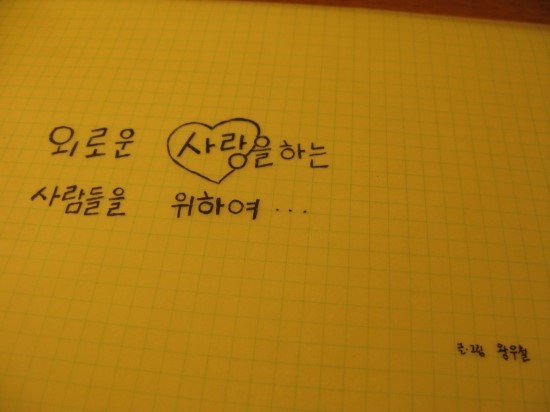 외로운 사랑을하는
사람들을 위하여...
글·그림 왕우철